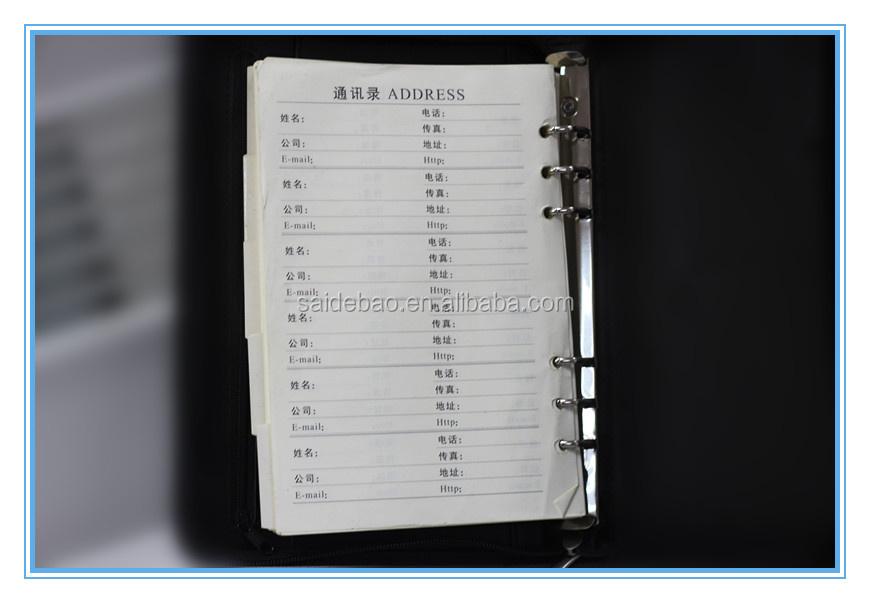 通讯录 ADDRESS
姓名: 电话:
传真:
公司: 地址:
E-mail: Http:
姓名: 电话:
传真:
公司: 地址:
E-mail: Http:
姓名: 电话:
传真:
公司: 地址:
E-mail: Http:
saidebao.en.alibaba.com
姓名: 电话:
传真:
公司: 地址:
E-mail: Http:
姓名: 电话:
传真:
公司: 地址:
E-mail: Http:
姓名: 电话:
传真:
公司: 地址:
E-mail: Http: